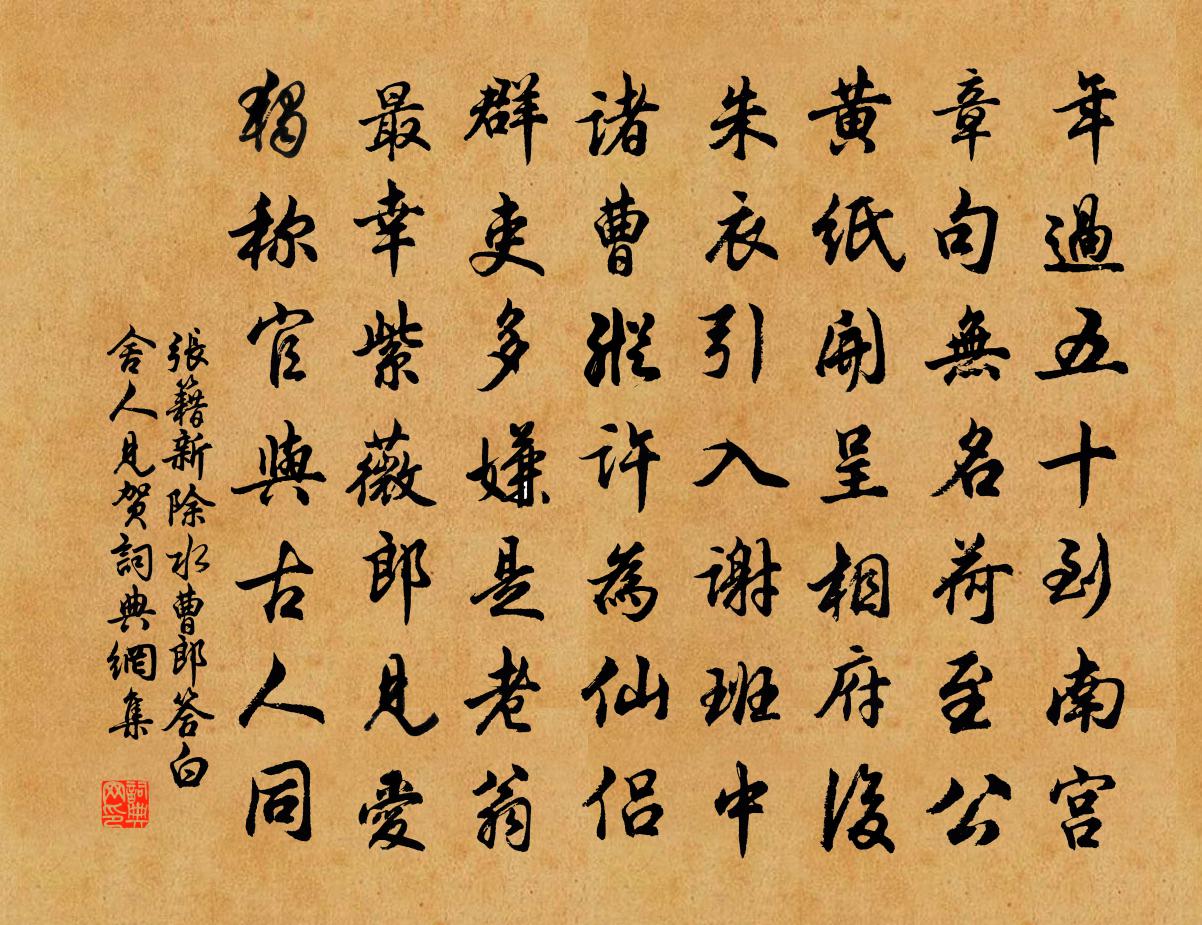 年過五十到南宮
章句無名荷至公
黃紙開呈相府後
朱衣引入謝班中
諸曹縱許為仙侶
群吏多嫌是老翁
最幸紫薇郎見愛
獨称官與古人同
張籍新除水曹郎答白
舍人見賀詞典網集
詞典
网印